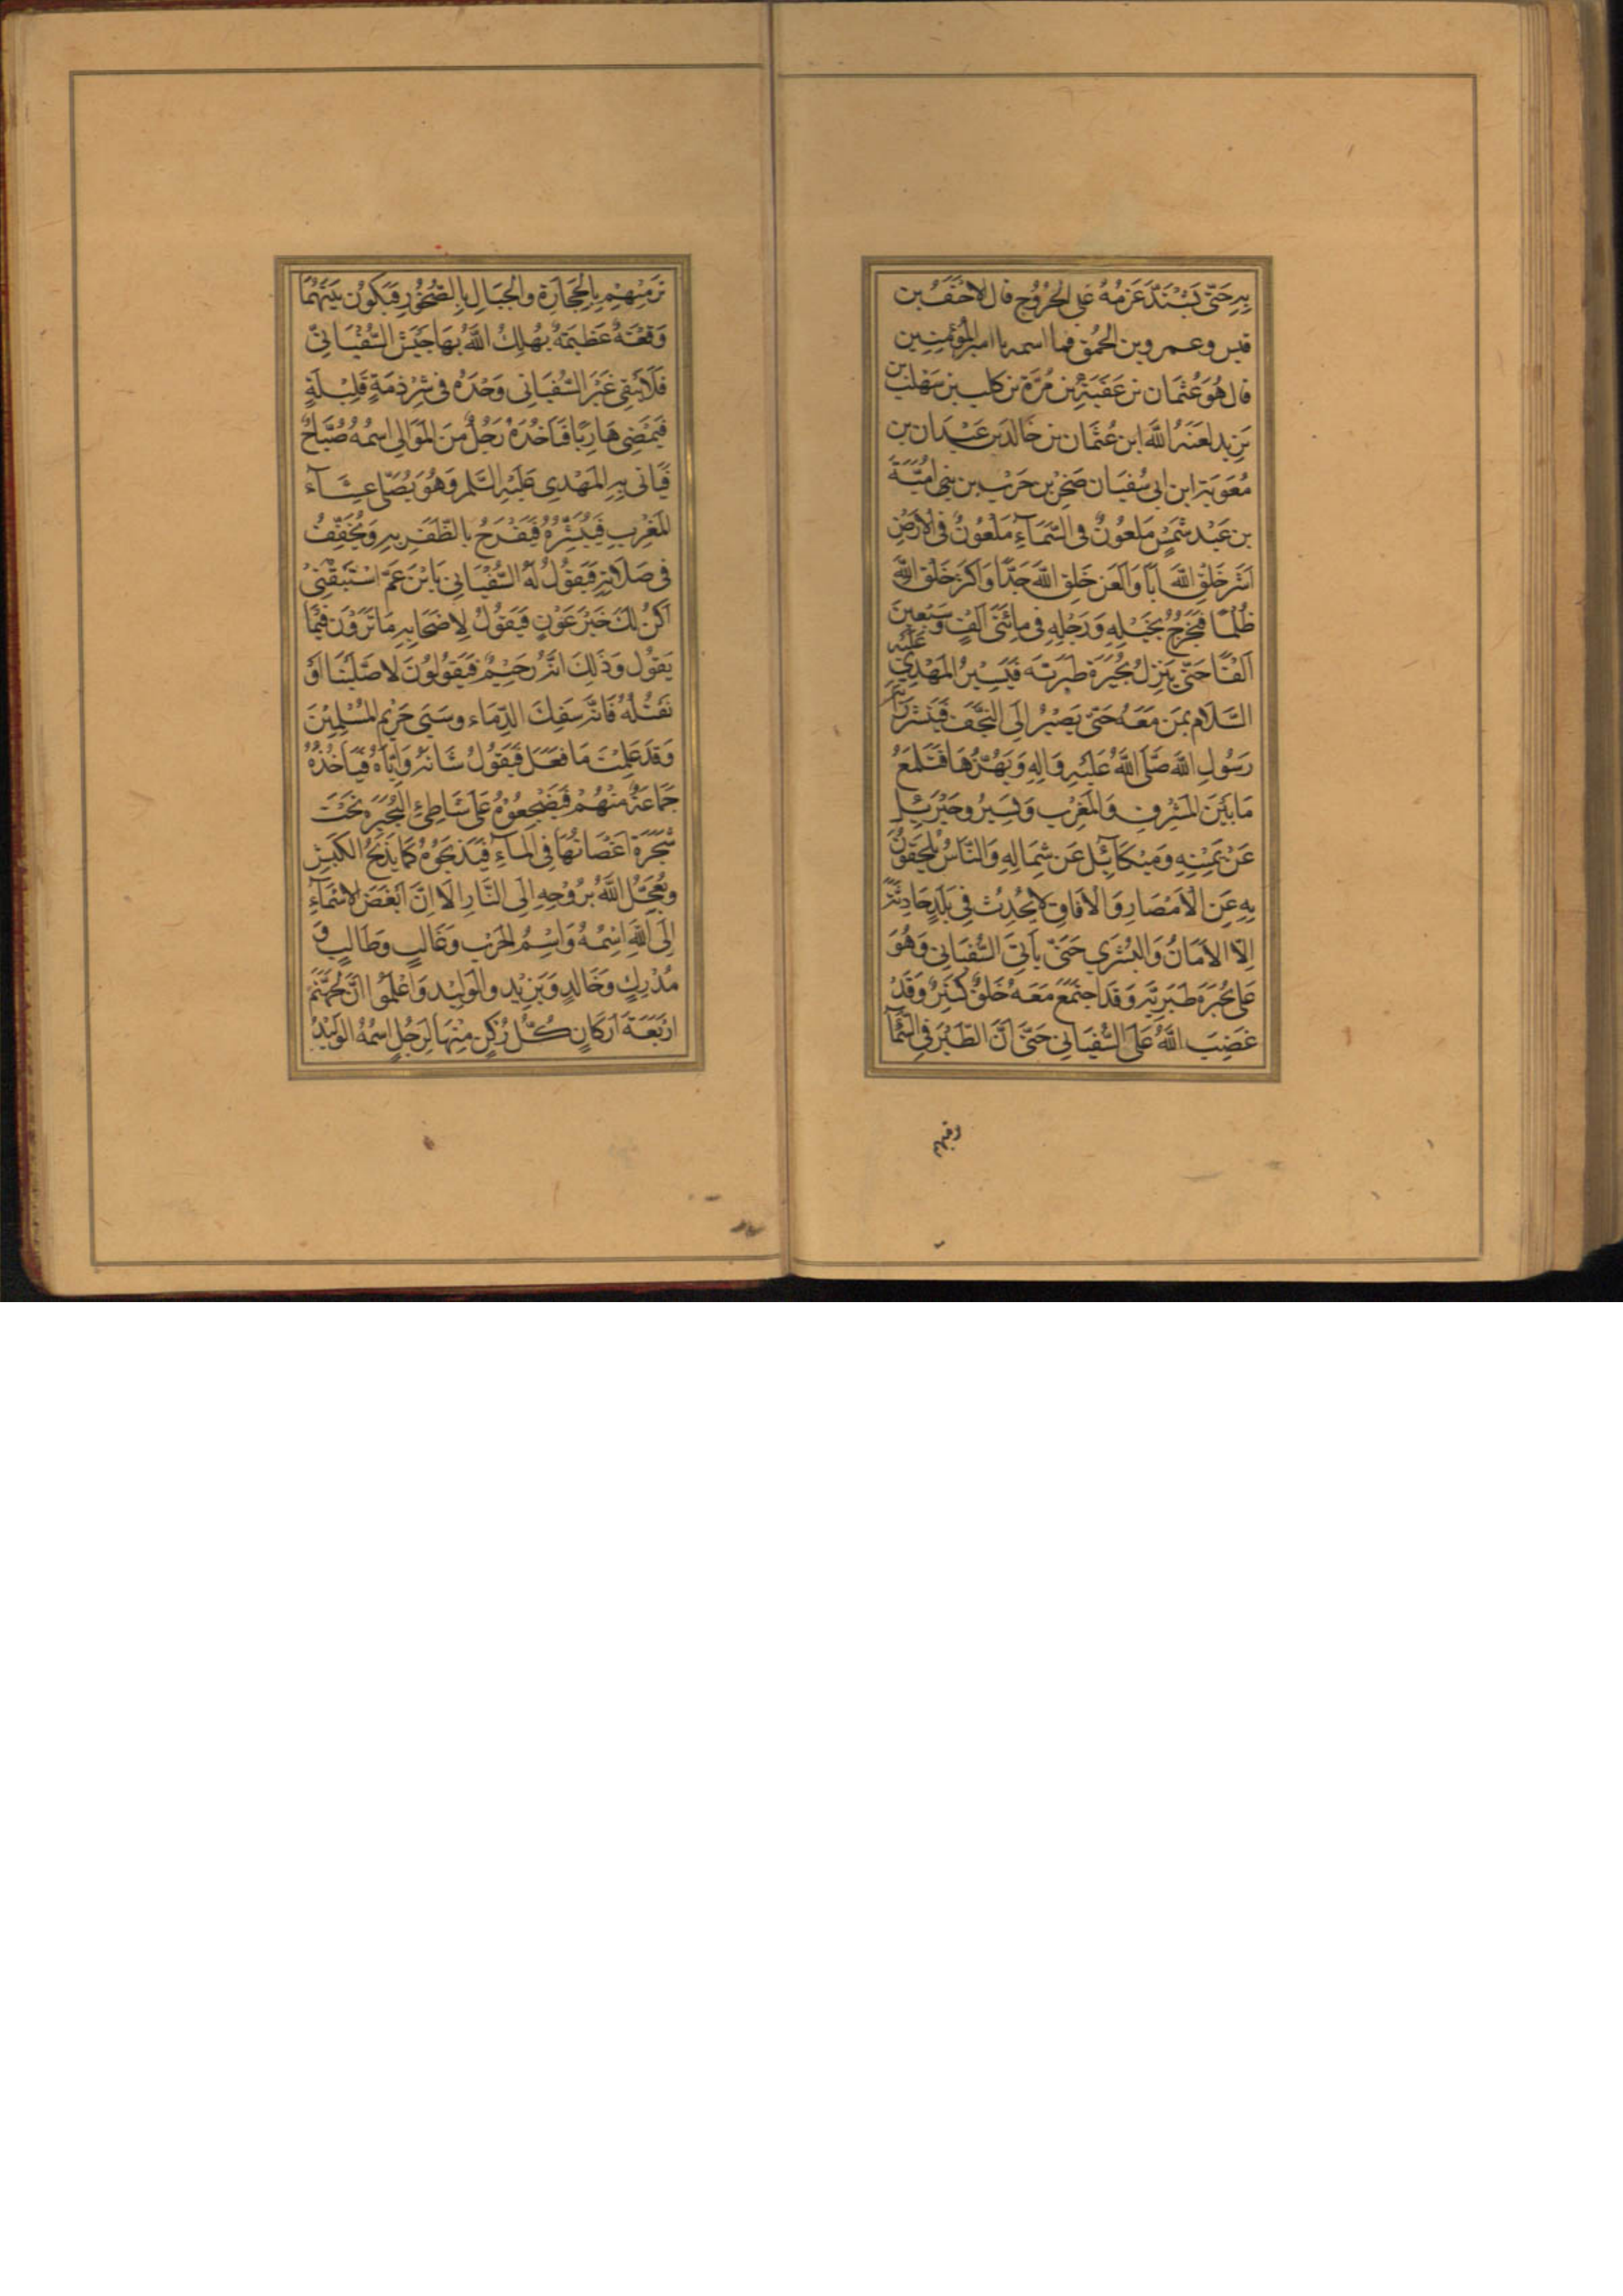 بِهِ حَتّى يَسْتَدَّ عَزمُهُ عَلى الخُرُوُجِ قال الاحْنَفُ بن
قيس وعمرو بن الحُمق فما اسمه يا امير المؤمنين
قال هُوَ عُثمَان بن عَقَبَة بن مُرّة بن كليب بن سَهلب بن
يَزيد لعَنَهُ اللَّه ابن عُثمَان بن خالد بن عَبْدان بن
مُعوية ابن ابى سُفيَان صَخر بن حَرب بن بنى اُميَّةَ
بن عَبْد شمْسٍ مَلعُونٌ فى السَّمَآءِ مَلْعُونٌ فى الاَرْضِ
اشَرّ خَلقِ اللَّه اَباً وَالْعَن خَلِق اللَّه جَدًّا وَاكثر خَلق اللَّهِ
ظُلماً فيَخرُجُ بخَيْلِهِ وَرَجْلِهِ فى مِائتَى اَلفٍ وَسَبْعينَ
اَلفْاً حَتّى يَنزِلُ بُحَيْرَة طَبَريَّة فَيَسِيْرُ المَهْدِي عَلَيْهِ
السَّلام بمَن مَعَهُ حَتّى يَصِيْرُ اِلَى النَّجَف فَيَنْشر رَايَة
رَسُولِ اللَّه صَلَّى اللَّهُ عَلَيْهِ وَالِهِ وَيَهُزُّهَا فَتَلمَعُ
مَا بَيْنَ المَشْرِقِ وَالمَغْرِبِ وَيَسِيْرُ وجَبْرَئيل
عَنْ يَمِيْنِهِ وَمِيْكَآئيل عَن شِمَالِهِ وَالنَّاسُ يَلْحَقُونَ
بِهِ عَنِ الْاَمْصَارِ وَالْاَفَاقِ لَا يَحْدِثُ فِى بَلَدٍ حَادِثَةٌ
اِلّا الاَمَانُ وَالبُشْرَى حَتّى يَاتِىَ السُّفيَانى وَهُوَ
عَلى بُحَيرَة طَبَرِيَّه وَقَد اجتَمَعَ مَعَهُ خَلقٌ كَثِيْرٌ وَقَدْ
غَضِبَ اللَّهُ عَلَى السُّفيَانِى حَتَّى اَنَّ الطَّيْرَ فِى السَّمَآ
ترميهم
تَرْمِيْهِمْ بِالحِجَارَةِ والجبَالِ بِالصُّخُورِ فيَكُونُ بَيْنَهُمَا
وَقْعَةٌ عَظيمَةٌ يُهْلِكُ اللَّهُ بهَا جَيْشَ السُّفْيَانِىّ
فَلَا يَبْقى غَيْرَ السُّفيَانى وَحْدَهُ فى شِرْذمَةٍ قَلِيْلَةٍ
فَيَمْضِى هَارِبًا فَيَاخُذُهُ رَجُلٌ مِنَ المَوَالى اسمُهُ صُبَّاحٌ
فَيَاتى بِهِ المَهْدِى عَلَيْهِ السَّلم وَهُوَ يُصَلّى عِشَآءَ
المَغْرِبِ فَيُبَشِّرُهُ فَيَفْرَحُ بالظّفَرِ بِهِ وَيُخَفِّفُ
فى صَلَاتِهِ فَيَقُولُ لَهُ السُّفْيَانى يَا بْنَ عَمّ اسْتَبْقِنِىْ
اَكُنْ لَكَ خَيْرَ عَوْنٍ فَيَقُولُ لِاَصْحَابِهِ مَا تَرَوْنَ فيْمَا
يَقوُل وَذَلِكَ انّهُ رَحيْمٌ فَيَقُولُونَ لا صَلَّيْنَا اَوْ
نَقْتُلهُ فَانّهُ سَفِكَ الدِّمَاء وسَبى حَريم المُسْلِمِيْنَ
وَقَد عَلِمْتَ مَا فعَلَ فَيَقُولُ شَانَهُ وَايّاهُ فيَاخُذُهُ
جَمَاعَةٌ مِنْهُمْ فيَضْجِعُوْهُ عَلَى شَاطِئِ البُحَيرَة تَحْتَ
شَجَرَة اَغصَانُهَا فِى المَآءِ فَيَذبَحُوْهُ كَمَا يَذبَحُ الكَبْش
ويُعَجِّلُ اللَّهُ بروُحِهِ اِلَى النَّارِ اَلَا اِنَّ اَبْغَضَ الاَسْمَآءِ
اِلَى اللَّهِ اِسْمُهُ وَاِسْمُ الحَرْبِ وغَالبٍ وَطَالِبٍ وَ
مُدْرِكٍ وَخَالِدٍ وَيَزِيْد والوَليْد وَاعْلَمُوا انَّ لِجَهَنَّمَ
ارْبَعَةَ اَركَانٍ كُلُّ رُكنٍ مِنْهَا لِرَجُلٍ اسمُهُ الوَليْدُ